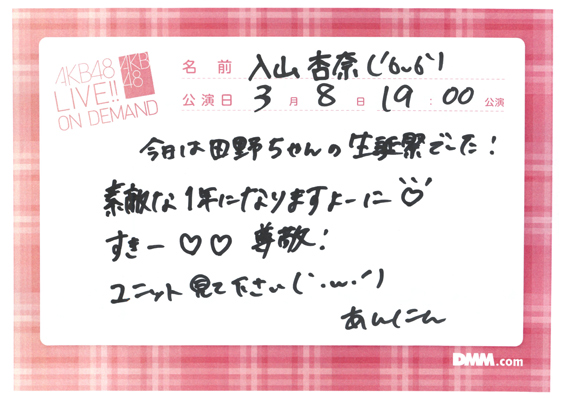 AKB48
LIVE!!
ON DEMAND
AKB
48
名前 入山杏奈(´6~6`)
公演日 3月8日 19:00公演
今日は田野ちゃんの生誕祭でした!
素敵な1年になりますよーに♡
すきー♡♡ 尊敬!
ユニット見て下さい(`・ω・´)
あんにん
DMM.com